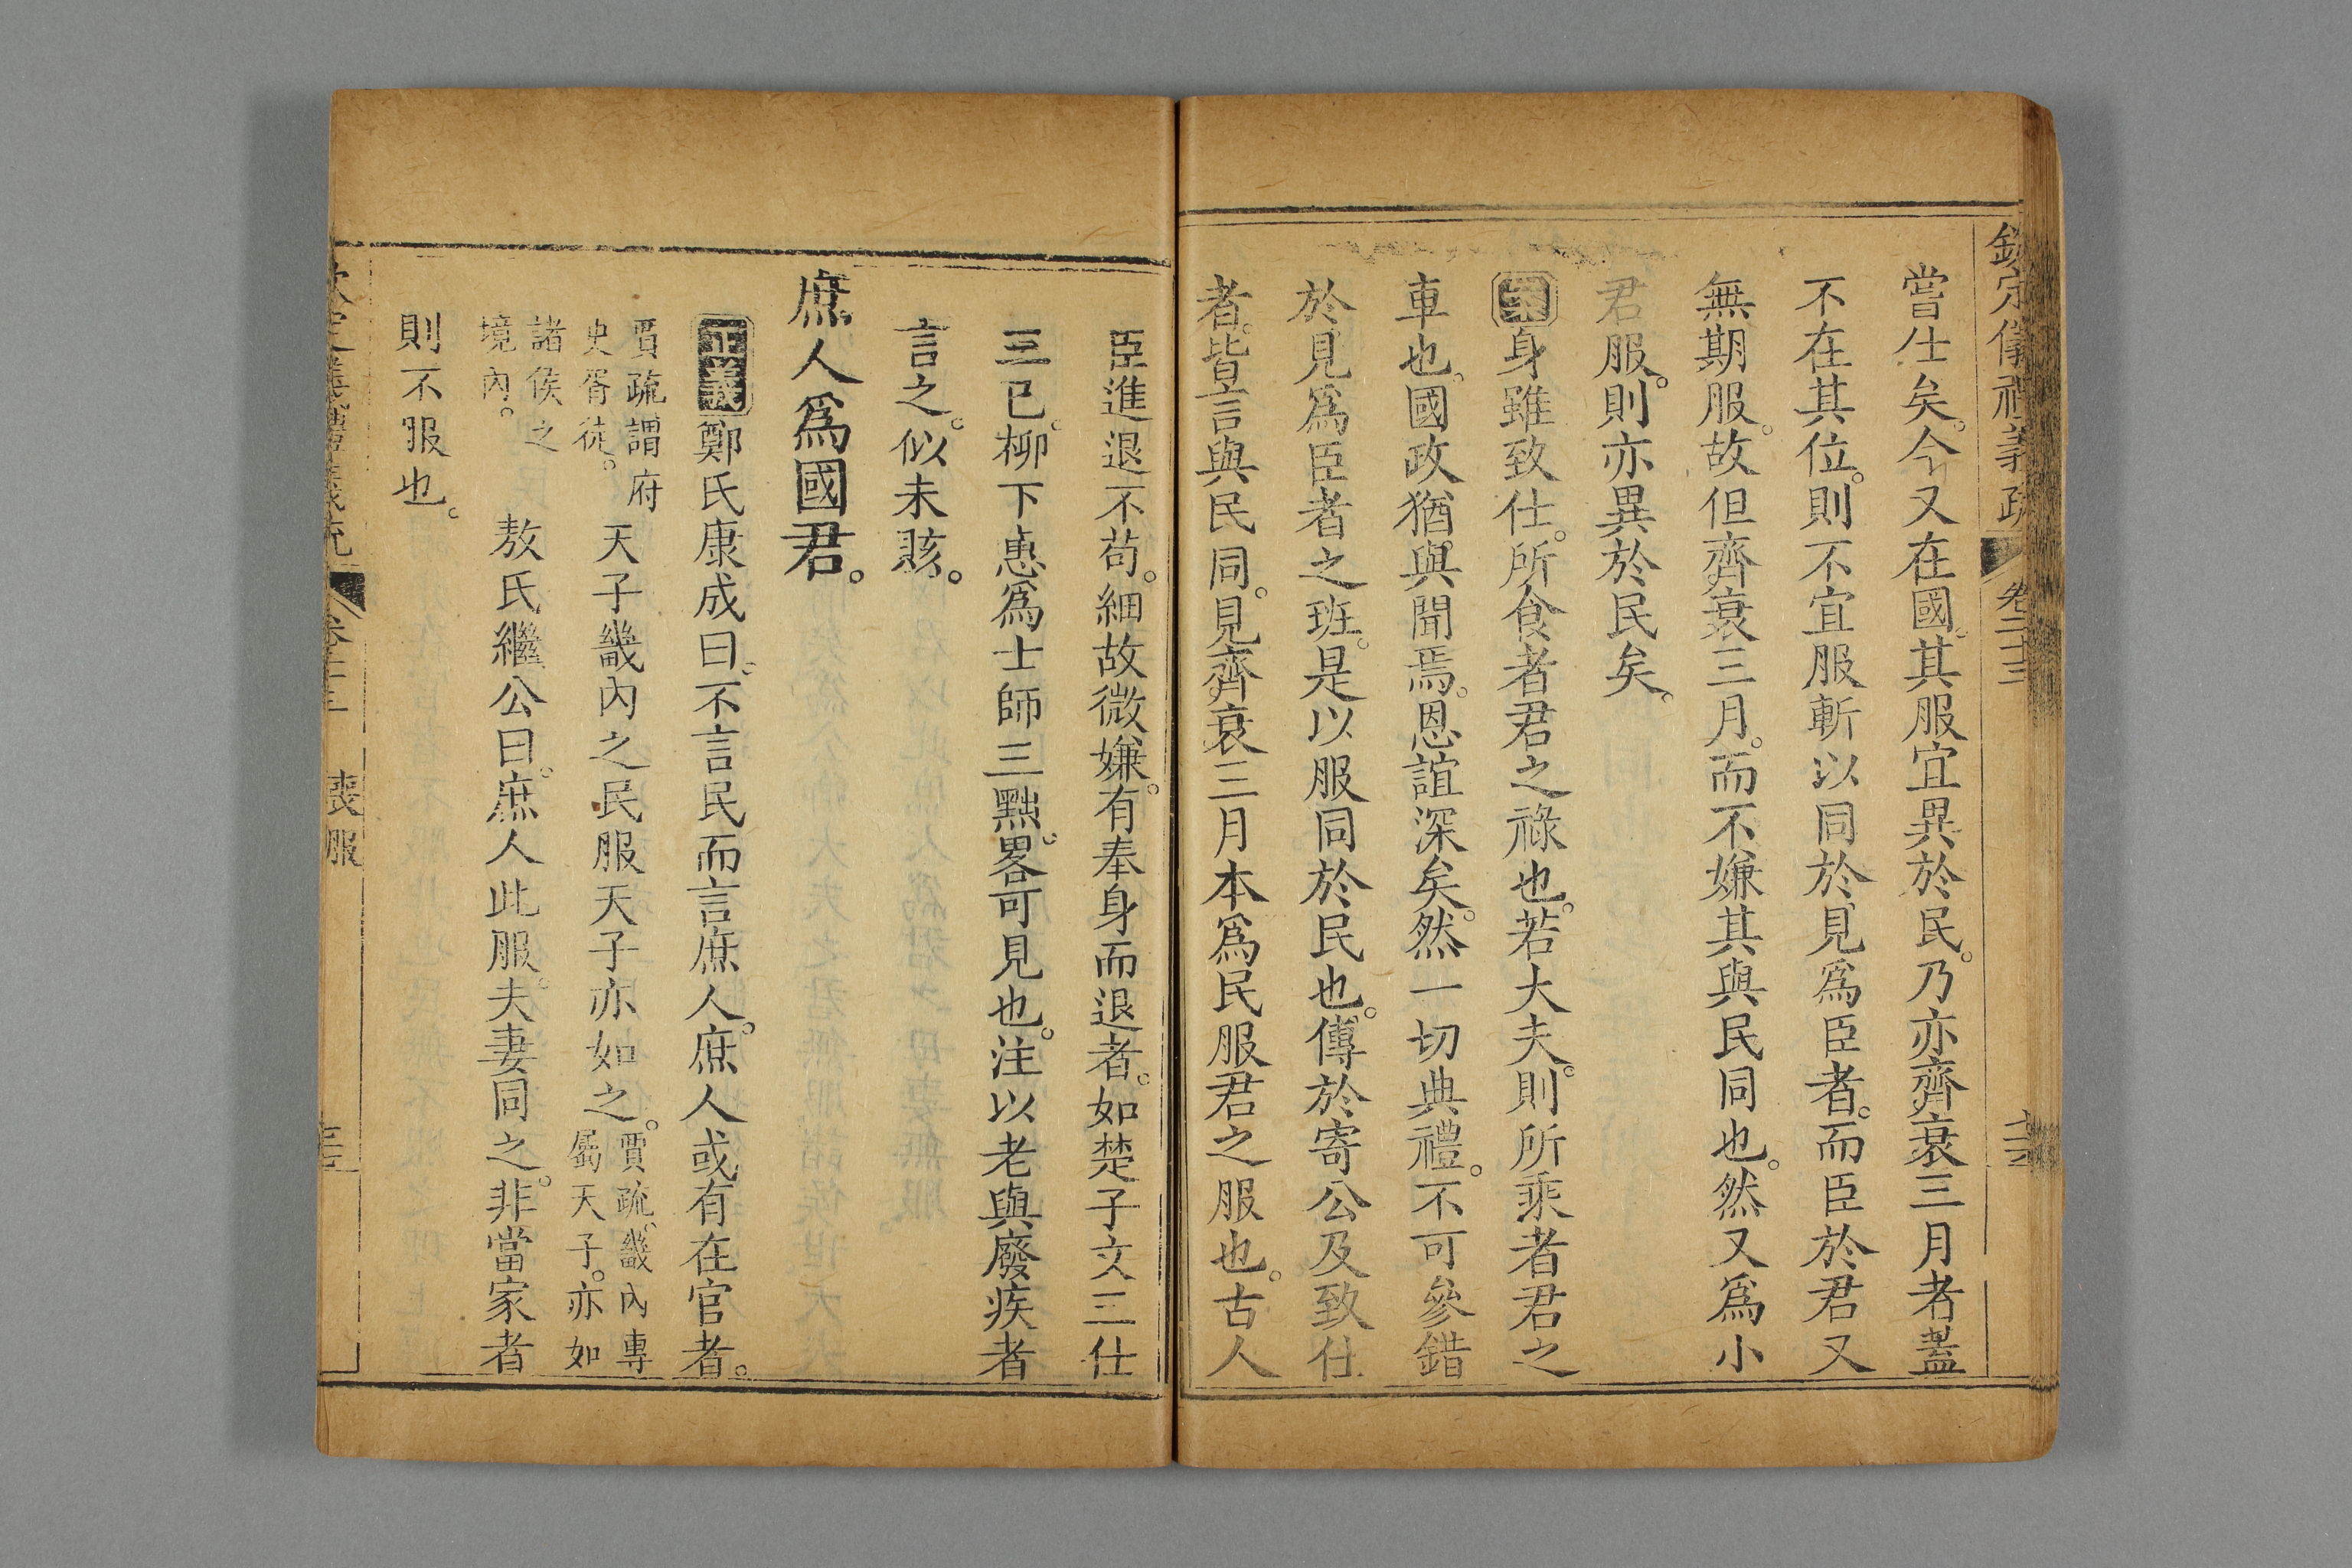 欽定儀禮義疏 卷二十三
嘗仕矣。今又在國。其服宜異於民。乃亦齊衰三月者蓋
不在其位。則不宜服斬以同於見爲臣者。而臣於君又
無期服。故但齊衰三月。而不嫌其與民同也。然又爲小
君服。則亦異於民矣。
案身雖致仕。所食者君之祿也。若大夫。則所乘者君之
車也。國政猶與聞焉。恩誼深矣。然一切典禮。不可參錯
於見爲臣者之班。是以服同於民也。傳於寄公及致仕
者。皆言與民同。見齊衰三月本爲民服君之服也。古人
臣進退不苟。細故微嫌。有奉身而退者。如楚子文三仕
三已。柳下惠爲士師三黜。畧可見也。注以老與廢疾者
言之。似未賅。
庶人爲國君。
正義鄭氏康成曰。不言民而言庶人。庶人或有在官者。
賈疏謂府
史胥徒。
天子畿內之民服天子亦如之。
賈疏。畿內專
屬天子。亦如
諸侯之
境內。
敖氏繼公曰。庶人此服。夫妻同之。非當家者
則不服也。
喪服